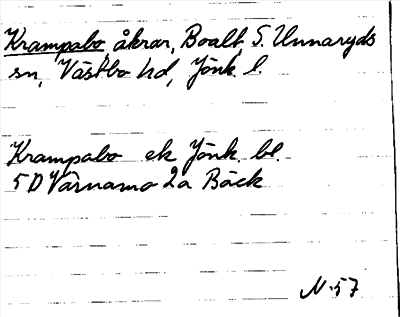 Krampabo åkrar, Boalt, S. Unnaryds
sn, Västbo hd, Jönk. l.
Krampabo ek Jönk. bl.
5 D Värnamo 2a Bäck
N-57